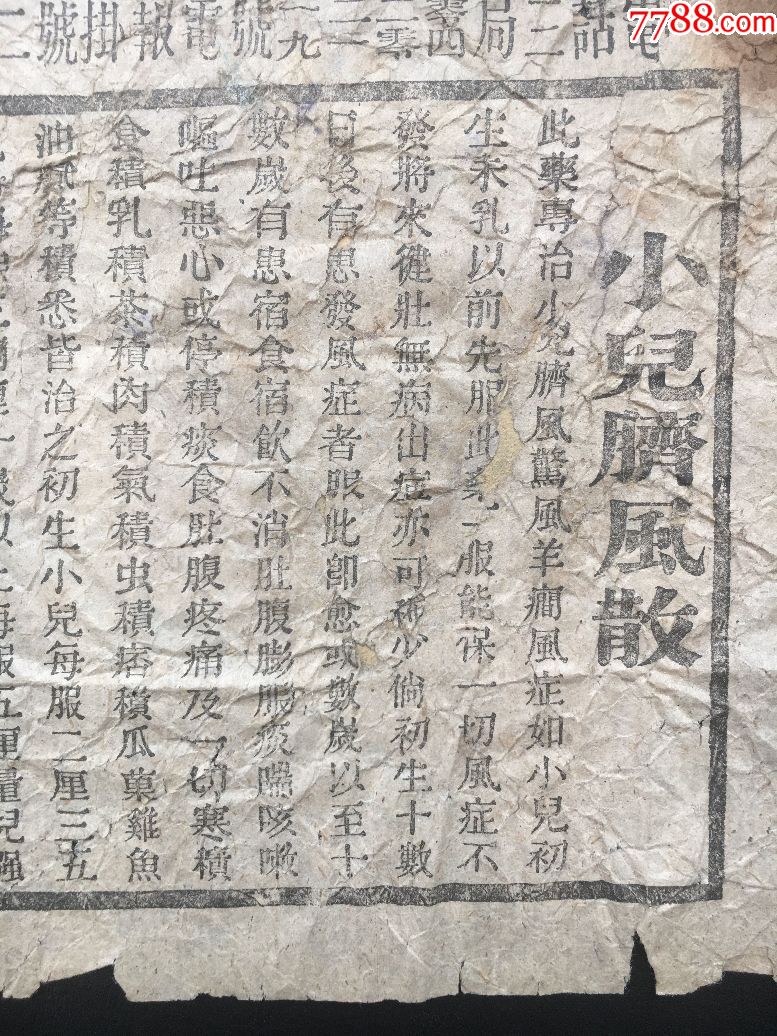 7788.com
電話二二局零四二零
一九號電報掛號二
小兒臍風散
此藥專治小兒臍風驚風羊癎風症如小兒初
生未乳以前先服此藥一服能保一切風症不
發將來健壯無病出症亦可稀少倘初生十數
日後有患發風症者服此卽愈或數歲以至十
數歲有患宿食宿飮不消肚腹膨脹痰喘咳嗽
嘔吐惡心或停積痰食肚腹疼痛及一切寒積
食積乳積茶積肉積氣積虫積痞積瓜菓雞魚
油膩等積悉皆治之初生小兒每服二厘三五
歲以上每服五厘量兒强